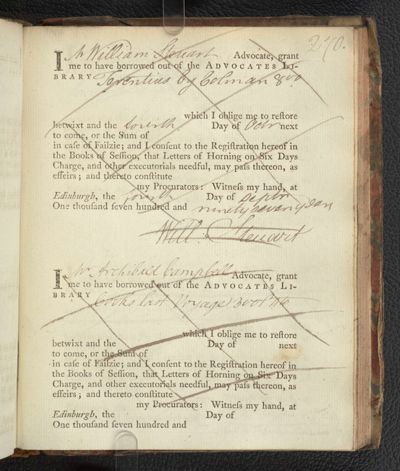 270.
I Mr William Steuart Advocate, grant
me to have borrowed out of the ADVOCATES LI-
BRARY Terentius by Colman 8vo.
which I oblige me to reſtore
betwixt and the fourth Day of Octr next
to come, or the Sum of
in caſe of Failzie; and I conſent to the Regiſtration hereof in
the Books of Seſſion, that Letters of Horning on Six Days
Charge, and other executorials needful, may paſs thereon, as
effeirs; and thereto conſtitute
my Procurators: Witneſs my hand, at
Edinburgh, the fourth Day of Septr
One thouſand ſeven hundred and ninety
Will. Steuart
I Mr Archibald Campbell Advocate, grant
me to have borrowed out of the ADVOCATES LI-
BRARY
Cooks last Voyage 3 vol. 4to
which I oblige me to reſtore
betwixt and the Day of next
to come, or the Sum of
in caſe of Failzie; and I conſent to the Regiſtration hereof in
the Books of Seſſion, that Letters of Horning on Six Days
Charge, and other executorials needful, may paſs thereon, as
effeirs; and thereto conſtitute
my Procurators: Witneſs my hand, at
Edinburgh, the Day of
One thouſand ſeven hundred and